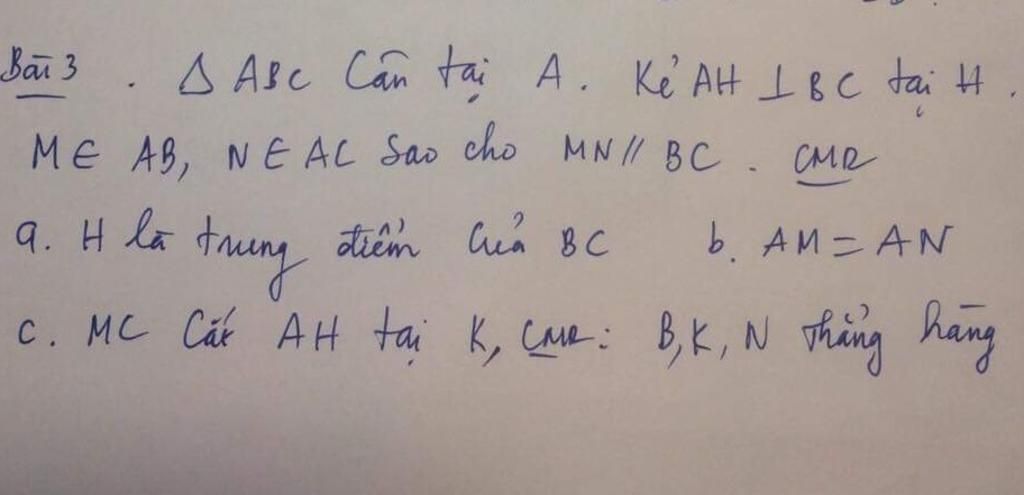 Bài 3 . Δ ABC Cân tại A. Kẻ AH ⊥ BC tại H.
M ∈ AB, N ∈ AC Sao cho MN // BC. CMR
a. H là trung điểm Của BC b. AM = AN
c. MC Cắt AH tại K, CMR: B, K, N thẳng hàng